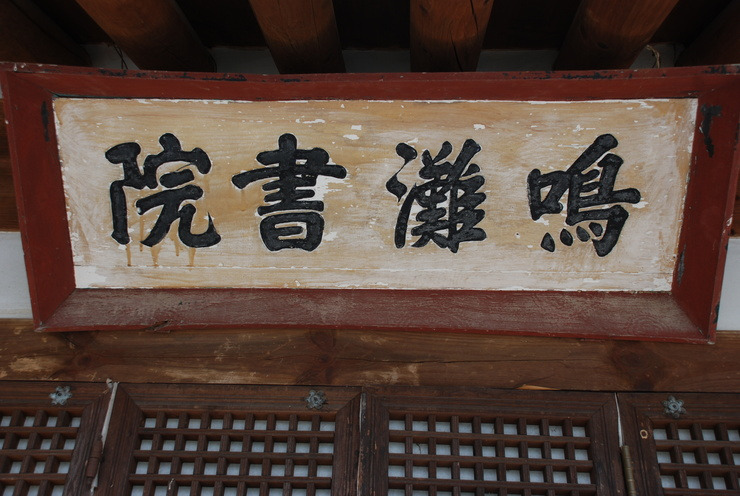 鳴灘書院